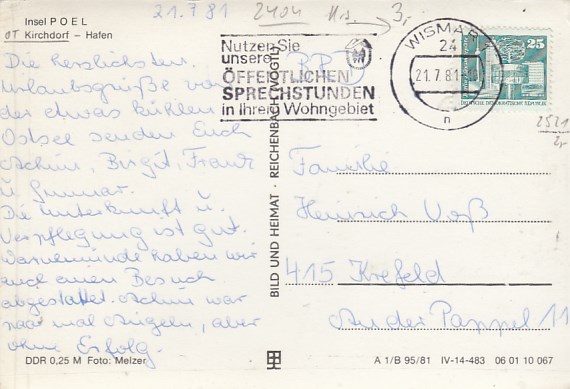 21.7.81
2404
3,-
Insel POEL
OT Kirchdorf – Hafen
Nutzen Sie
unsere
ÖFFENTLICHEN
SPRECHSTUNDEN
in Ihrem Wohngebiet
WISMAR 1
24
21.7.81
n
25
DEUTSCHE DEMOKRATISCHE REPUBLIK
2521
Die herzlichsten
Urlaubsgrüße von
der etwas kühlen
Ostsee senden Euch
Achim, Birgit, Frank
u. Gunnar.
Die Unterkunft u.
Verpflegung ist gut.
Warnemünde haben wir
auch einen Besuch
abgestattet. Achim war
mal Angeln, aber
ohne Erfolg.
DDR 0,25 M Foto: Melzer
BILD UND HEIMAT · REICHENBACH (VOGTL)
BRD
Familie
Heinrich Voß
415 Krefeld
An der Pappel 11
A 1/B 95/81 IV-14-483 06 01 10 067